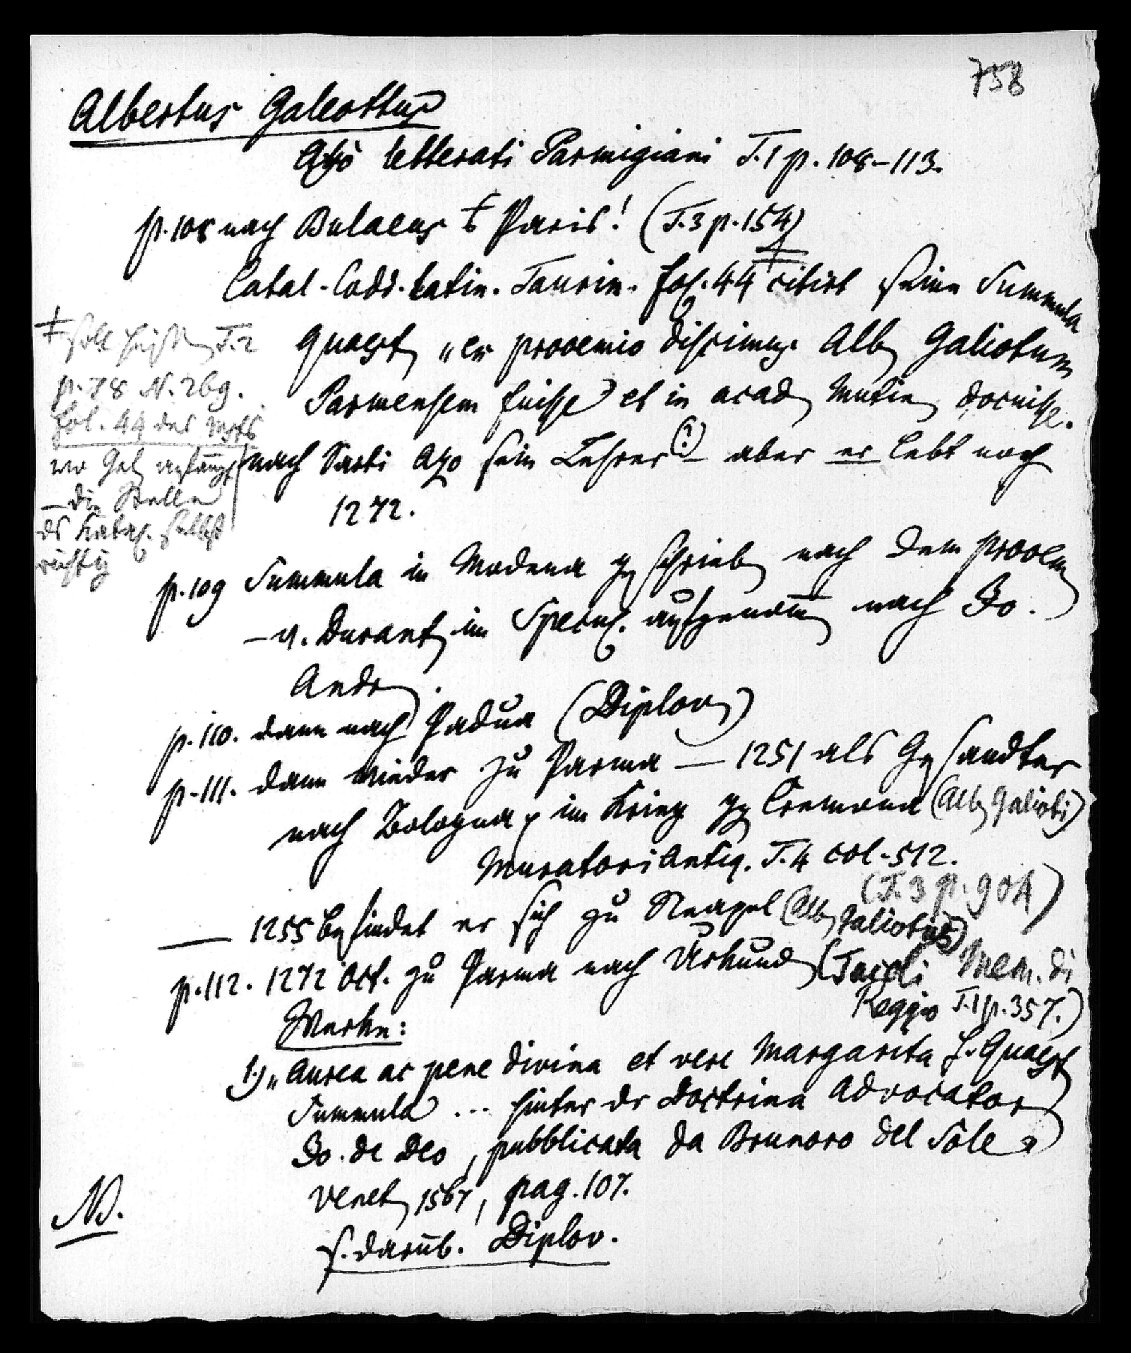 758
Albertus Galeottus
Affò Letterati Parmigiani T.1 p. 108–113.
p. 108 nach Bulaeus † Paris! (T.3 p. 154)
Catal. Codd. Latin. Taurin. fol. 44 citirt seine Summula
Quaest „ex prooemio discimus Alb Galiotum
Parmensem fuisse et in acad Mutin docuisse.
nach Sarti Azo sein Lehrer (?) – aber er lebt noch
1272.
‡ soll heißen T.2
p. 78 N. 269.
fol. 44 des Mss
wo Gal anfängt
– die Stelle
ds Katal. selbst
richtig
p. 109 Summula in Modena geschrieb nach dem prooem
– v. Durant im Specul. aufgenom̅ nach Jo.
Andr.
p. 110. dann nach Padua (Diplov)
p. 111. dann wieder zu Parma — 1251 als Gesandter
nach Bologna, im Krieg gg Cremona (Alb Galioti)
Muratori Antiq. T. 4 col. 512.
(T. 3 p. 904)
— 1255 befindet er sich zu Neapel (Alb Galiotus)
p. 112. 1272 Oct. zu Parma nach Urkund (Tacoli Mem. di
Reggio T. 1 p. 357.)
Werke:
1) „Aurea ac pene divina et vere Margarita s. Quaest
Summula ... hinter dr Doctrina Advocator
Jo. de Deo, pubblicata da Brunoro del Sole
Venet 1567, pag. 107.
NB.
s. darüb. Diplov.